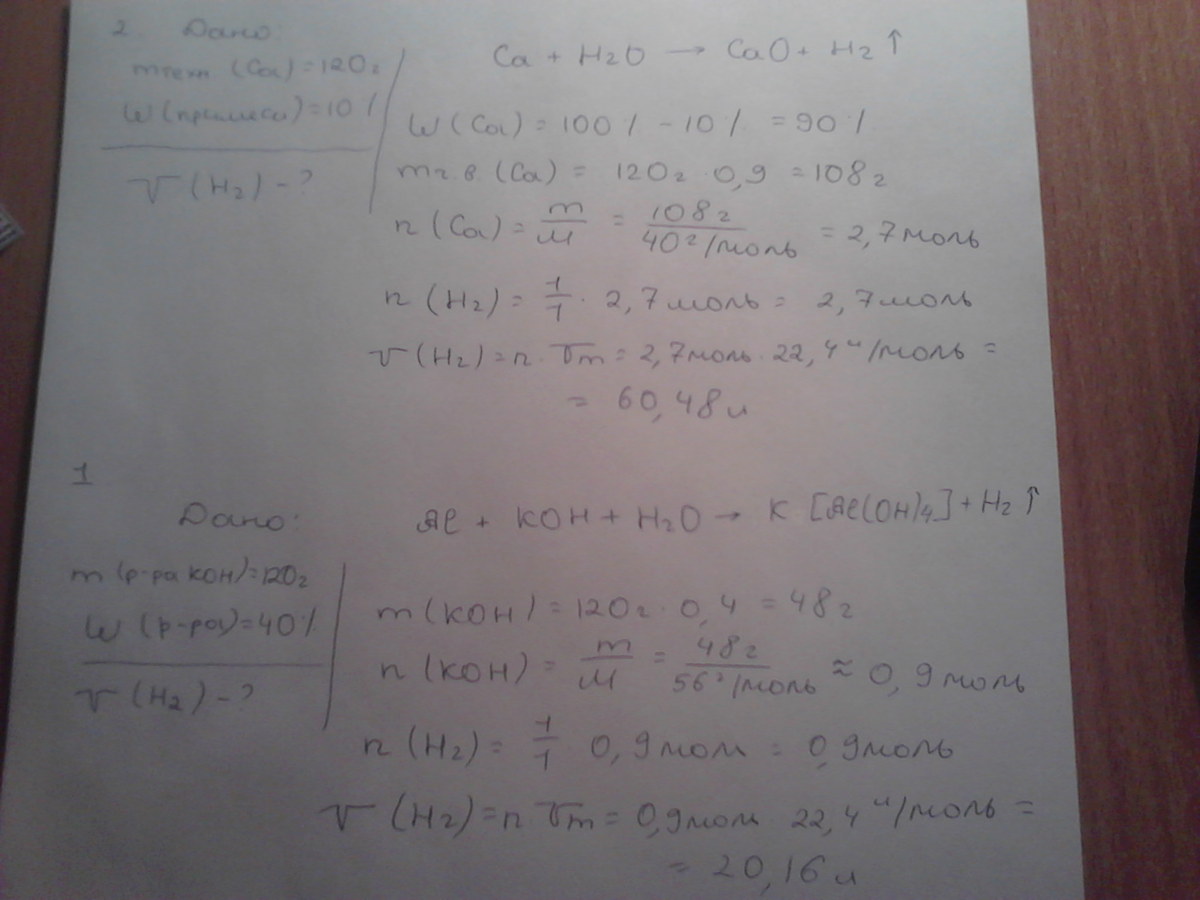 2 Дано:
m техн (Ca) = 120 г
W (примеси) = 10 %
V (H2) - ?
Ca + H2O → CaO + H2 ↑
W (Ca) = 100 % - 10 % = 90 %
m ч. в. (Ca) = 120 г · 0,9 = 108 г
n (Ca) = m/M = 108 г / 40 г/моль = 2,7 моль
n (H2) = 1/1 · 2,7 моль = 2,7 моль
V (H2) = n · Vm = 2,7 моль · 22,4 л/моль =
= 60,48 л
1
Дано:
m (р-ра KOH) = 120 г
W (р-ра) = 40 %
V (H2) - ?
Al + KOH + H2O → K [Al(OH)4] + H2 ↑
m (KOH) = 120 г · 0,4 = 48 г
n (KOH) = m/M = 48 г / 56 г/моль ≈ 0,9 моль
n (H2) = 1/1 0,9 мол = 0,9 моль
V (H2) = n Vm = 0,9 мол 22,4 л/моль =
= 20,16 л